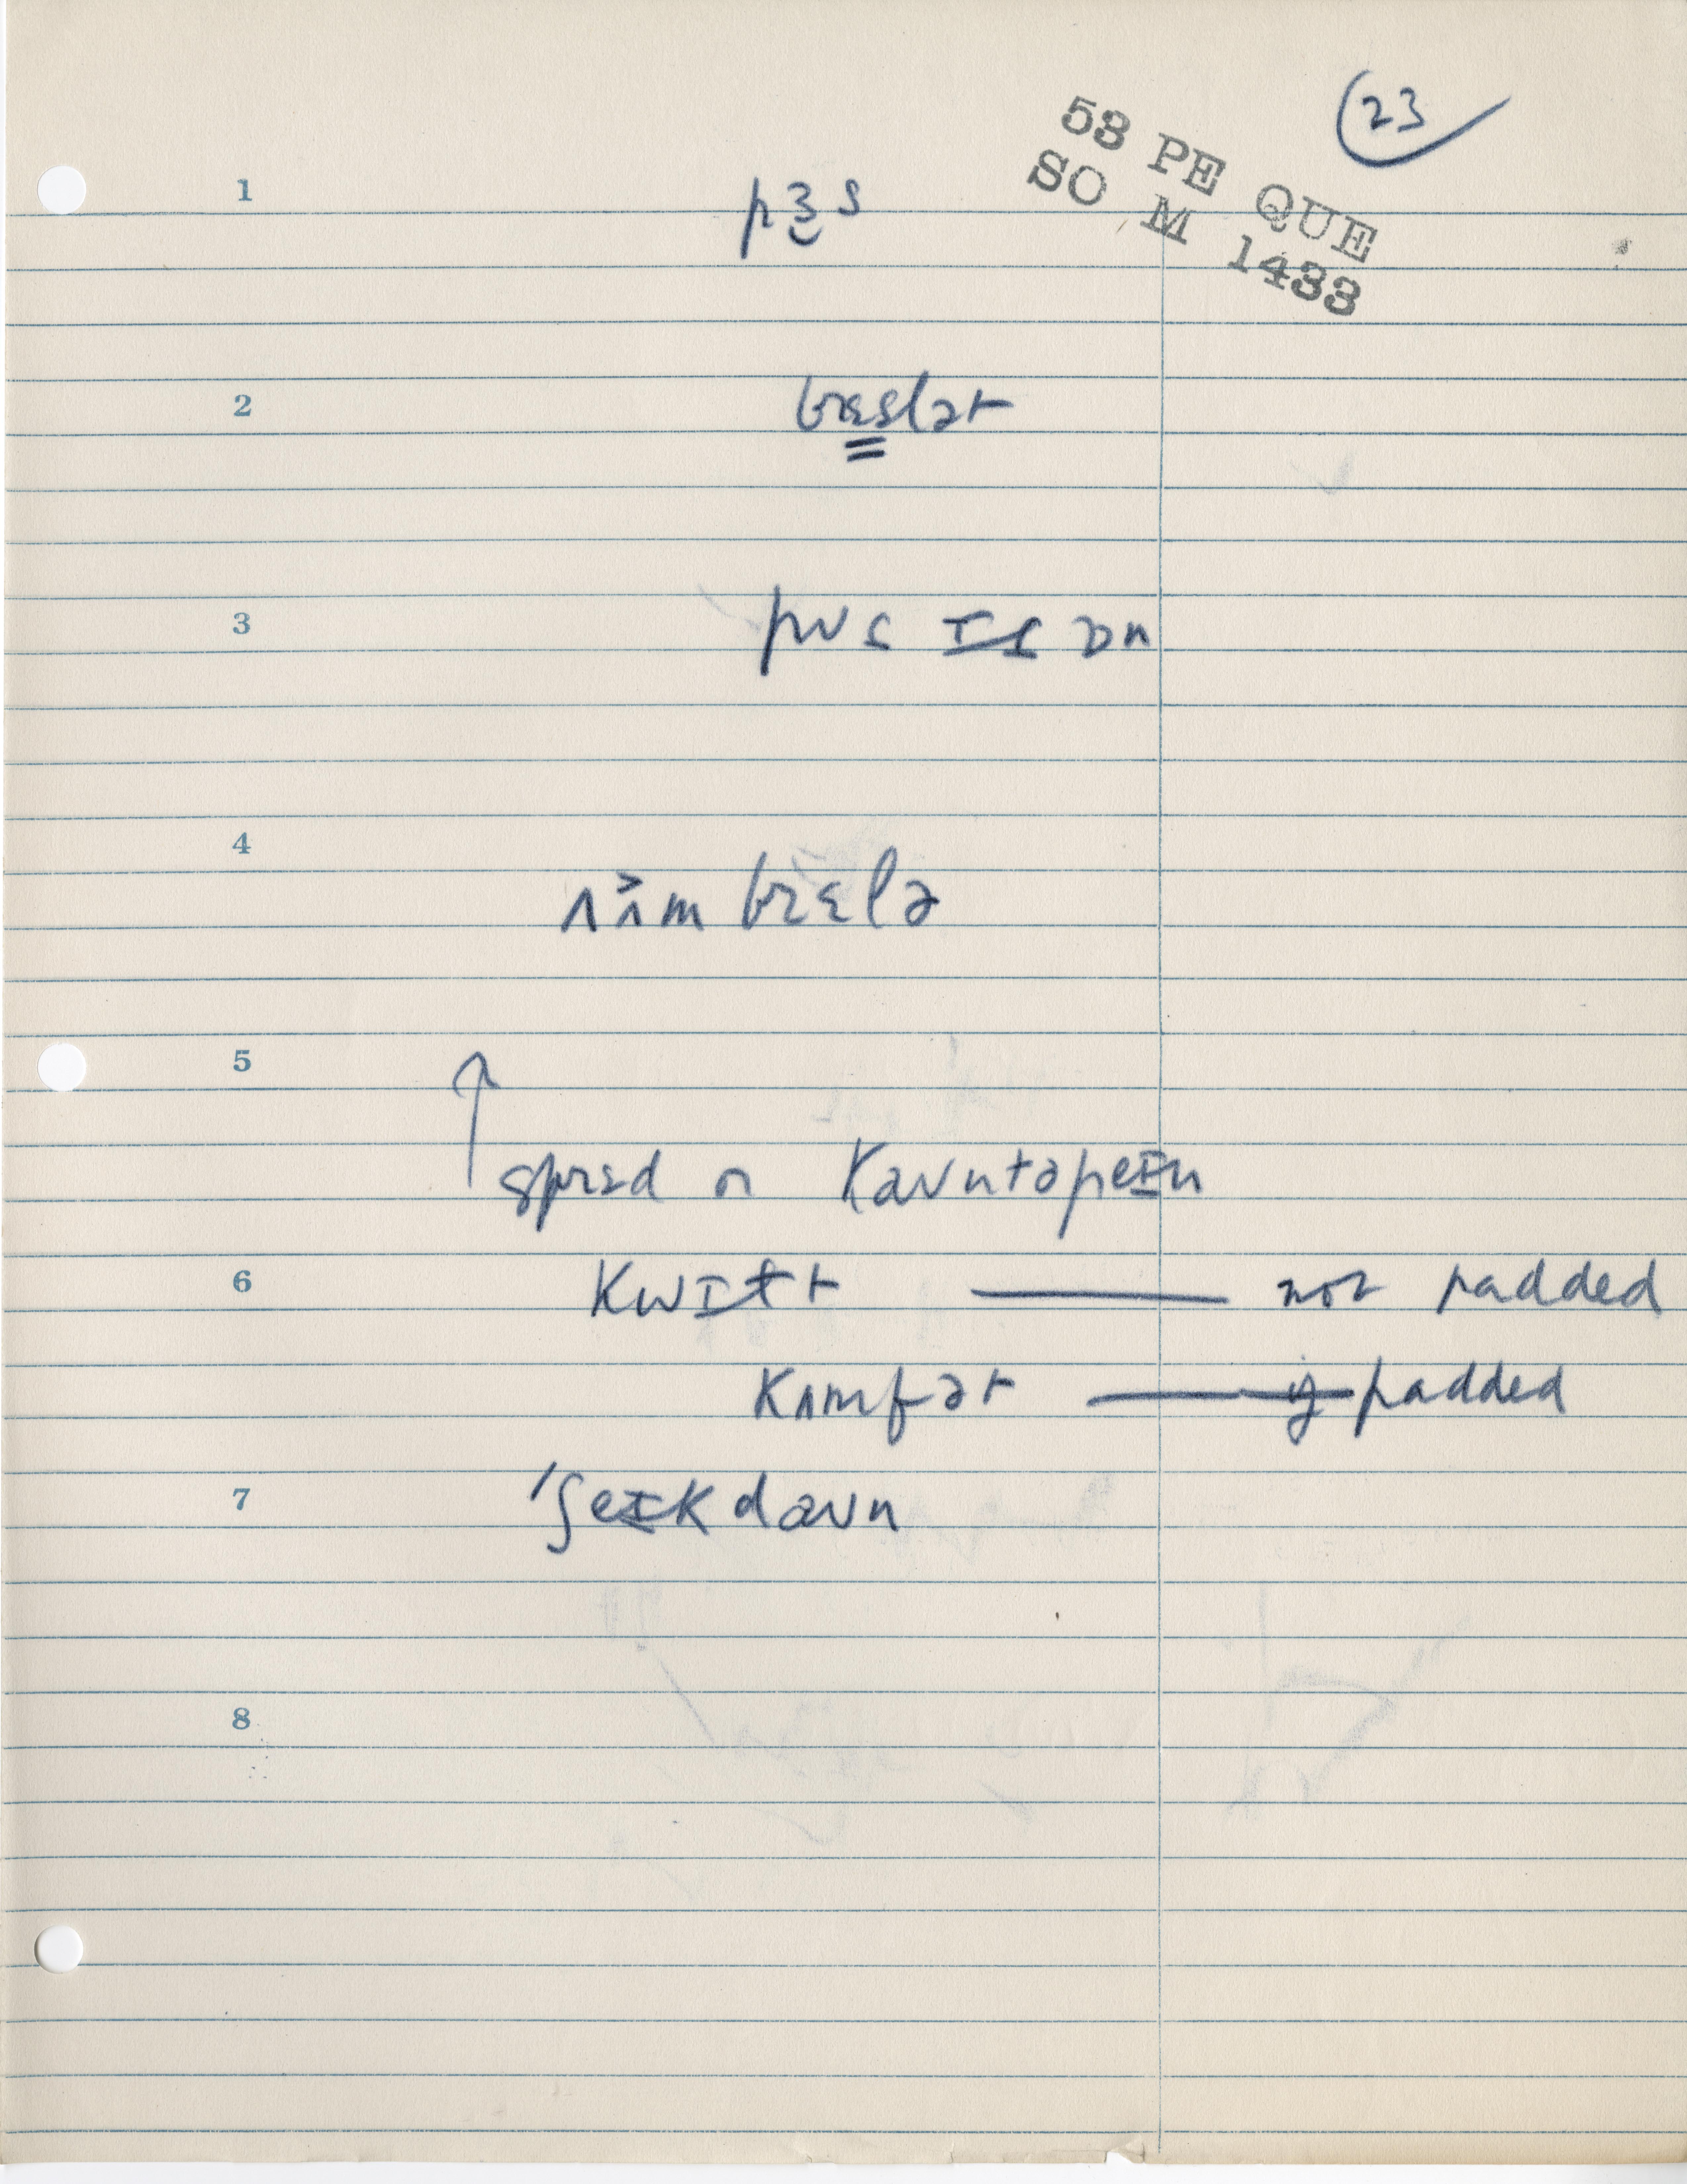 23
53 PE QUE
SO M 1433
1 pɜ̯s
2 brɛslət
3 pʊs ɪs ɒn
4 ʌ˃ʌm brɛlə
5
↑ sprɛd on kaʊntəpeɪn
6 kwɪlt — not padded
kʌmfət — if padded
7 ˈʃeɪkdaʊn
8